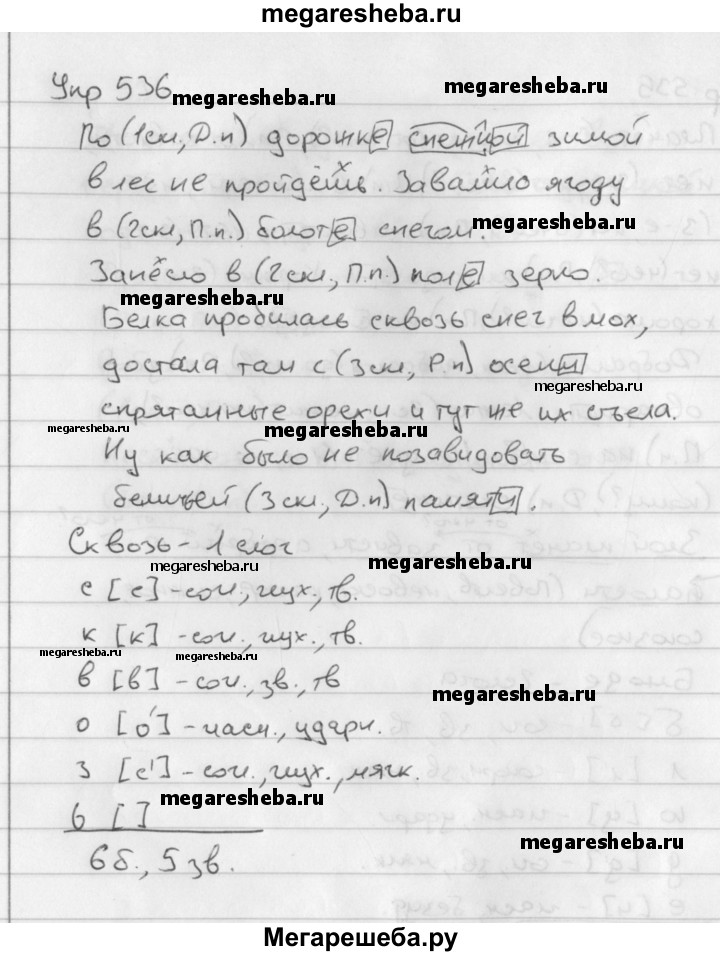 megaresheba.ru
Упр 536 megaresheba.ru megaresheba.ru
По (1скл, Д.п) дорожке снежной зимой
в лес не пройдёшь. Завалило ягоду
в (2скл, П.п.) болоте снегом. megaresheba.ru
Занесло в (2скл, П.п.) поле зерно.
megaresheba.ru
Белка пробилась сквозь снег в мох,
достала там с (3скл, Р.п) осени
megaresheba.ru
спрятанные орехи и тут же их съела.
megaresheba.ru megaresheba.ru
Ну как было не позавидовать
беличьей (3скл, Д.п) памяти.
Сквозь - 1 слог
megaresheba.ru megaresheba.ru
с [с] - сог., глух., тв.
к [к] - сог., глух., тв.
megaresheba.ru megaresheba.ru
в [в] - сог., зв., тв
megaresheba.ru
о [о́] - гласн., ударн.
з [с'] - сог., глух., мягк.
megaresheba.ru
ь [ ]
megaresheba.ru
6 б., 5 зв.
Мегарешеба.ру